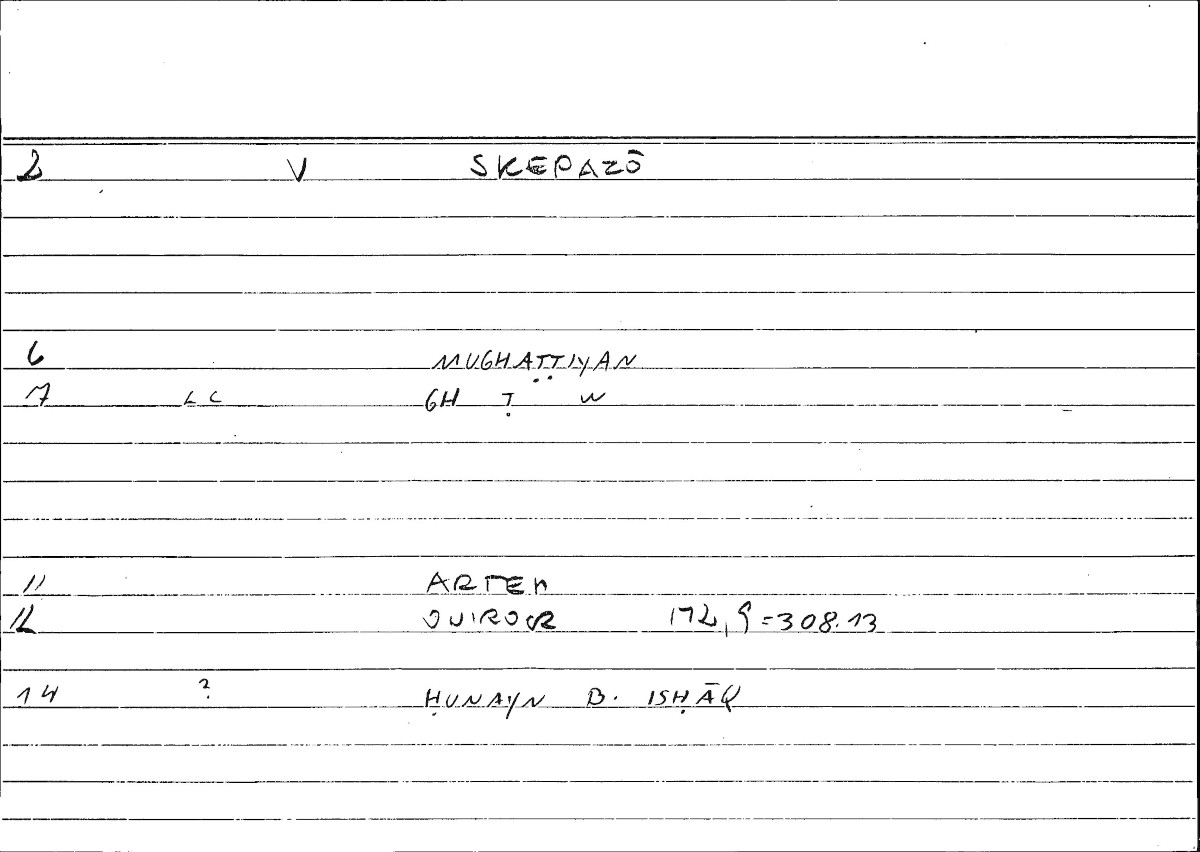 2 V SKEPAZŌ
6 MUGHAṬṬIYAN
7 LC GH Ṭ W
11 ARTEM
12 ONIROCR 172, 9 = 308.13
14 ? ḤUNAYN B. ISḤĀQ